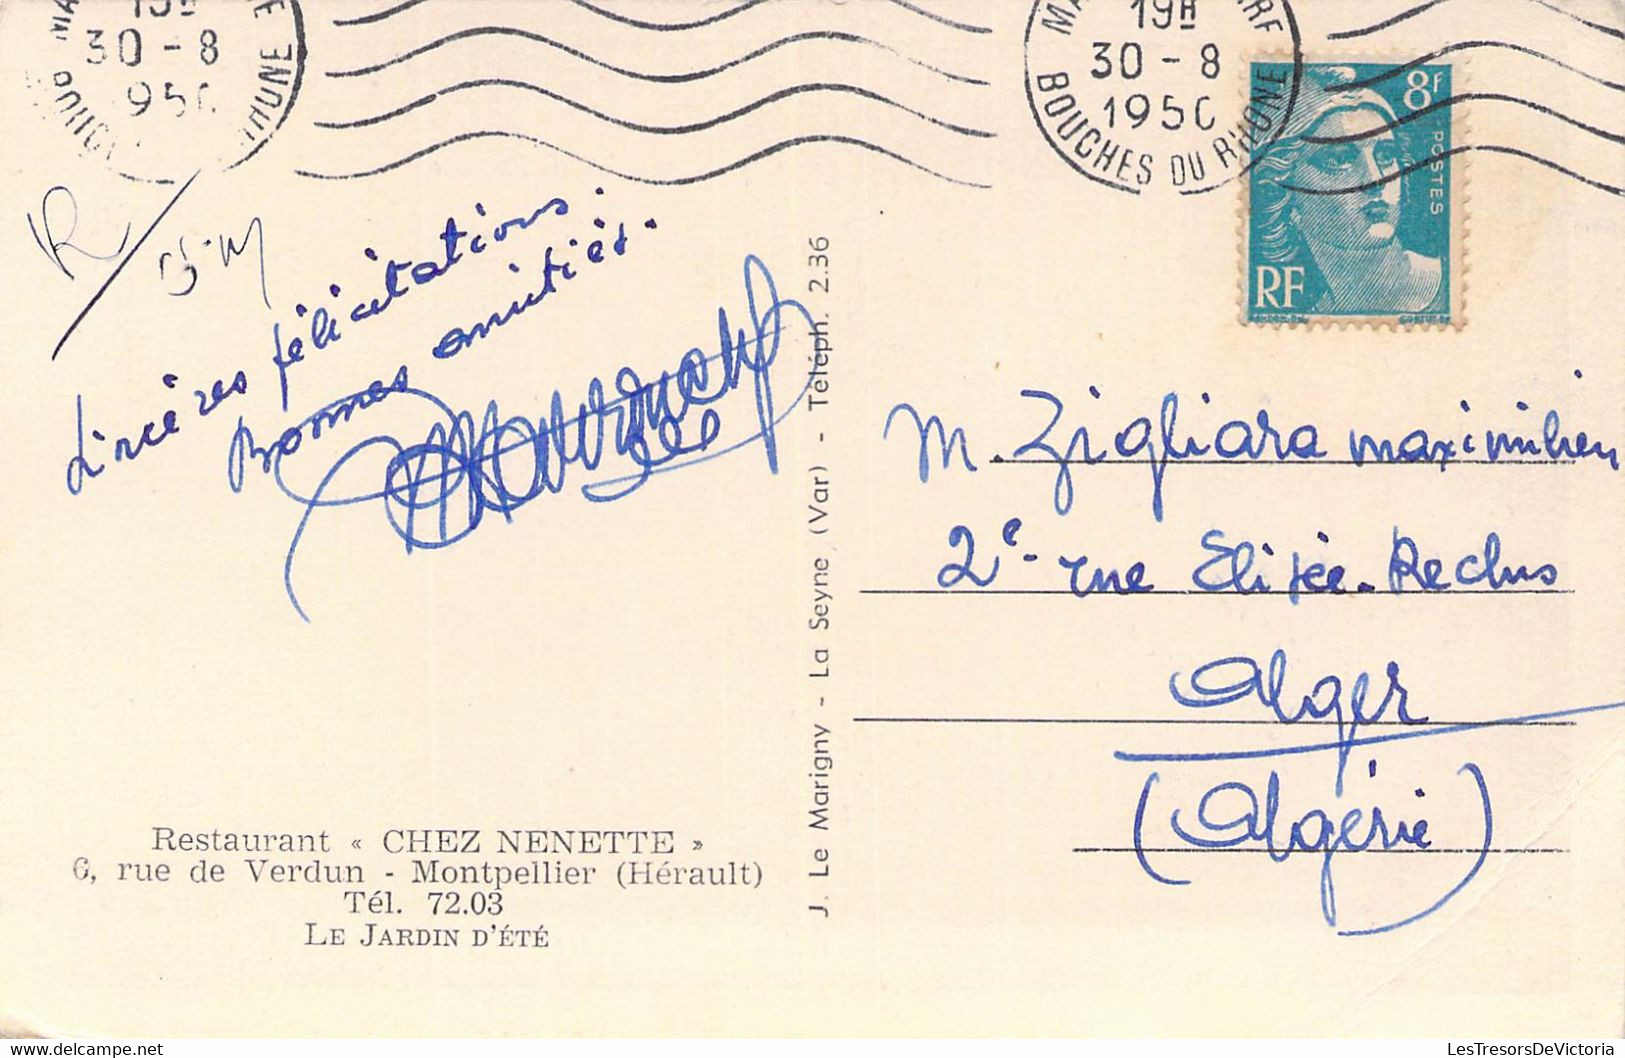 19H
30-8
195
19H
30-8
1950
BOUCHES DU RHONE
8F
POSTES
RF
R
Sincères félicitations.
Bonnes amitiés.
M. Zigliara maximilien
2e rue Elisée-Reclus
Alger
(Algérie)
J. Le Marigny - La Seyne (Var) - Téléph. 2.36
Restaurant « CHEZ NENETTE »
6, rue de Verdun - Montpellier (Hérault)
Tél. 72.03
LE JARDIN D'ÉTÉ
LesTresorsDeVictoria
lestresorsdevictoria.delcampe.net